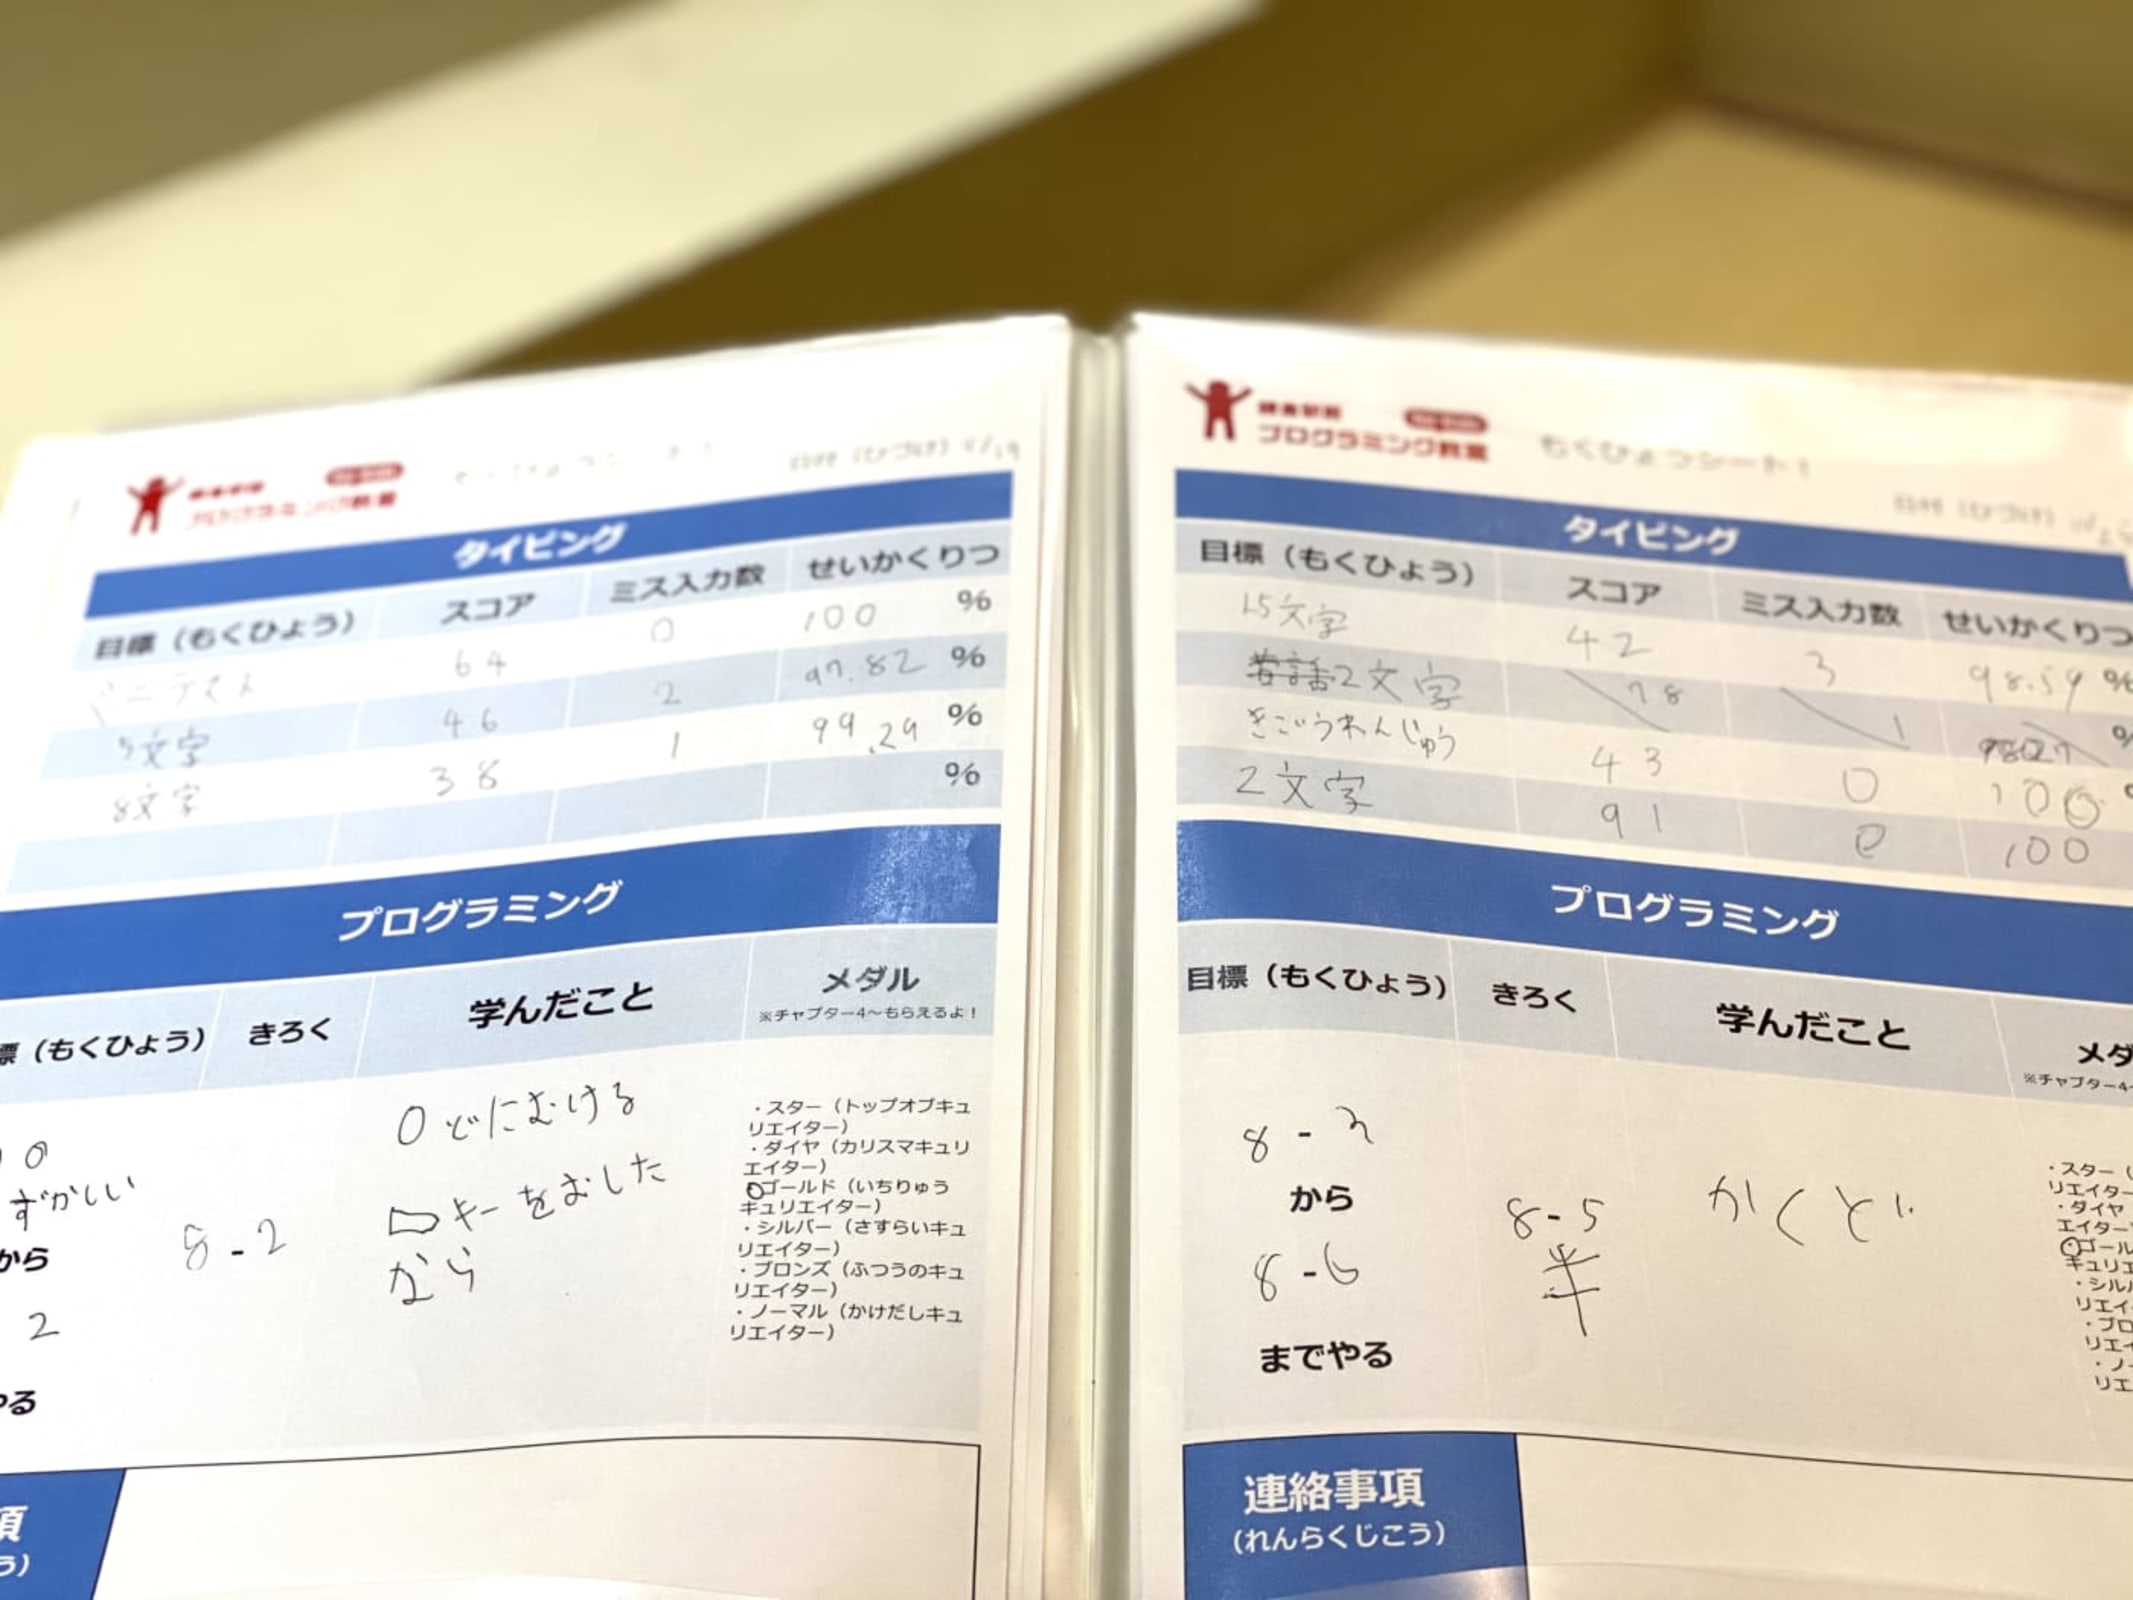 プログラミング教室
タイピング
目標（もくひょう） スコア ミス入力数 せいかくりつ
64 0 100 %
5文字 46 2 97.82 %
8文字 38 1 99.29 %
%
プログラミング
標（もくひょう） きろく 学んだこと メダル
※チャプター4〜もらえるよ！
0どにむける
ずかしい
から
2
やる
8-2
キーをおした
から
・スター（トップオブキュ
リエイター）
・ダイヤ（カリスマキュリ
エイター）
ゴールド（いちりゅう
キュリエイター）
・シルバー（さすらいキュ
リエイター）
・ブロンズ（ふつうのキュ
リエイター）
・ノーマル（かけだしキュ
リエイター）
項
う）
プログラミング教室
もくひょうシート！
タイピング
目標（もくひょう） スコア ミス入力数 せいかくりつ
15文字 42 3 98.59 %
2文字 78 1 %
きごうれんじゅう 43 0 100
2文字 91 0 100
プログラミング
目標（もくひょう） きろく 学んだこと メダ
※チャプター4〜
8-3
から
8-6
までやる
8-5
半
かくど
・スター（
リエイター
・ダイヤ
エイター
ゴール
キュリエ
・シル
リエイ
・ブロ
リエイ
・ノー
リエ
連絡事項
（れんらくじこう）